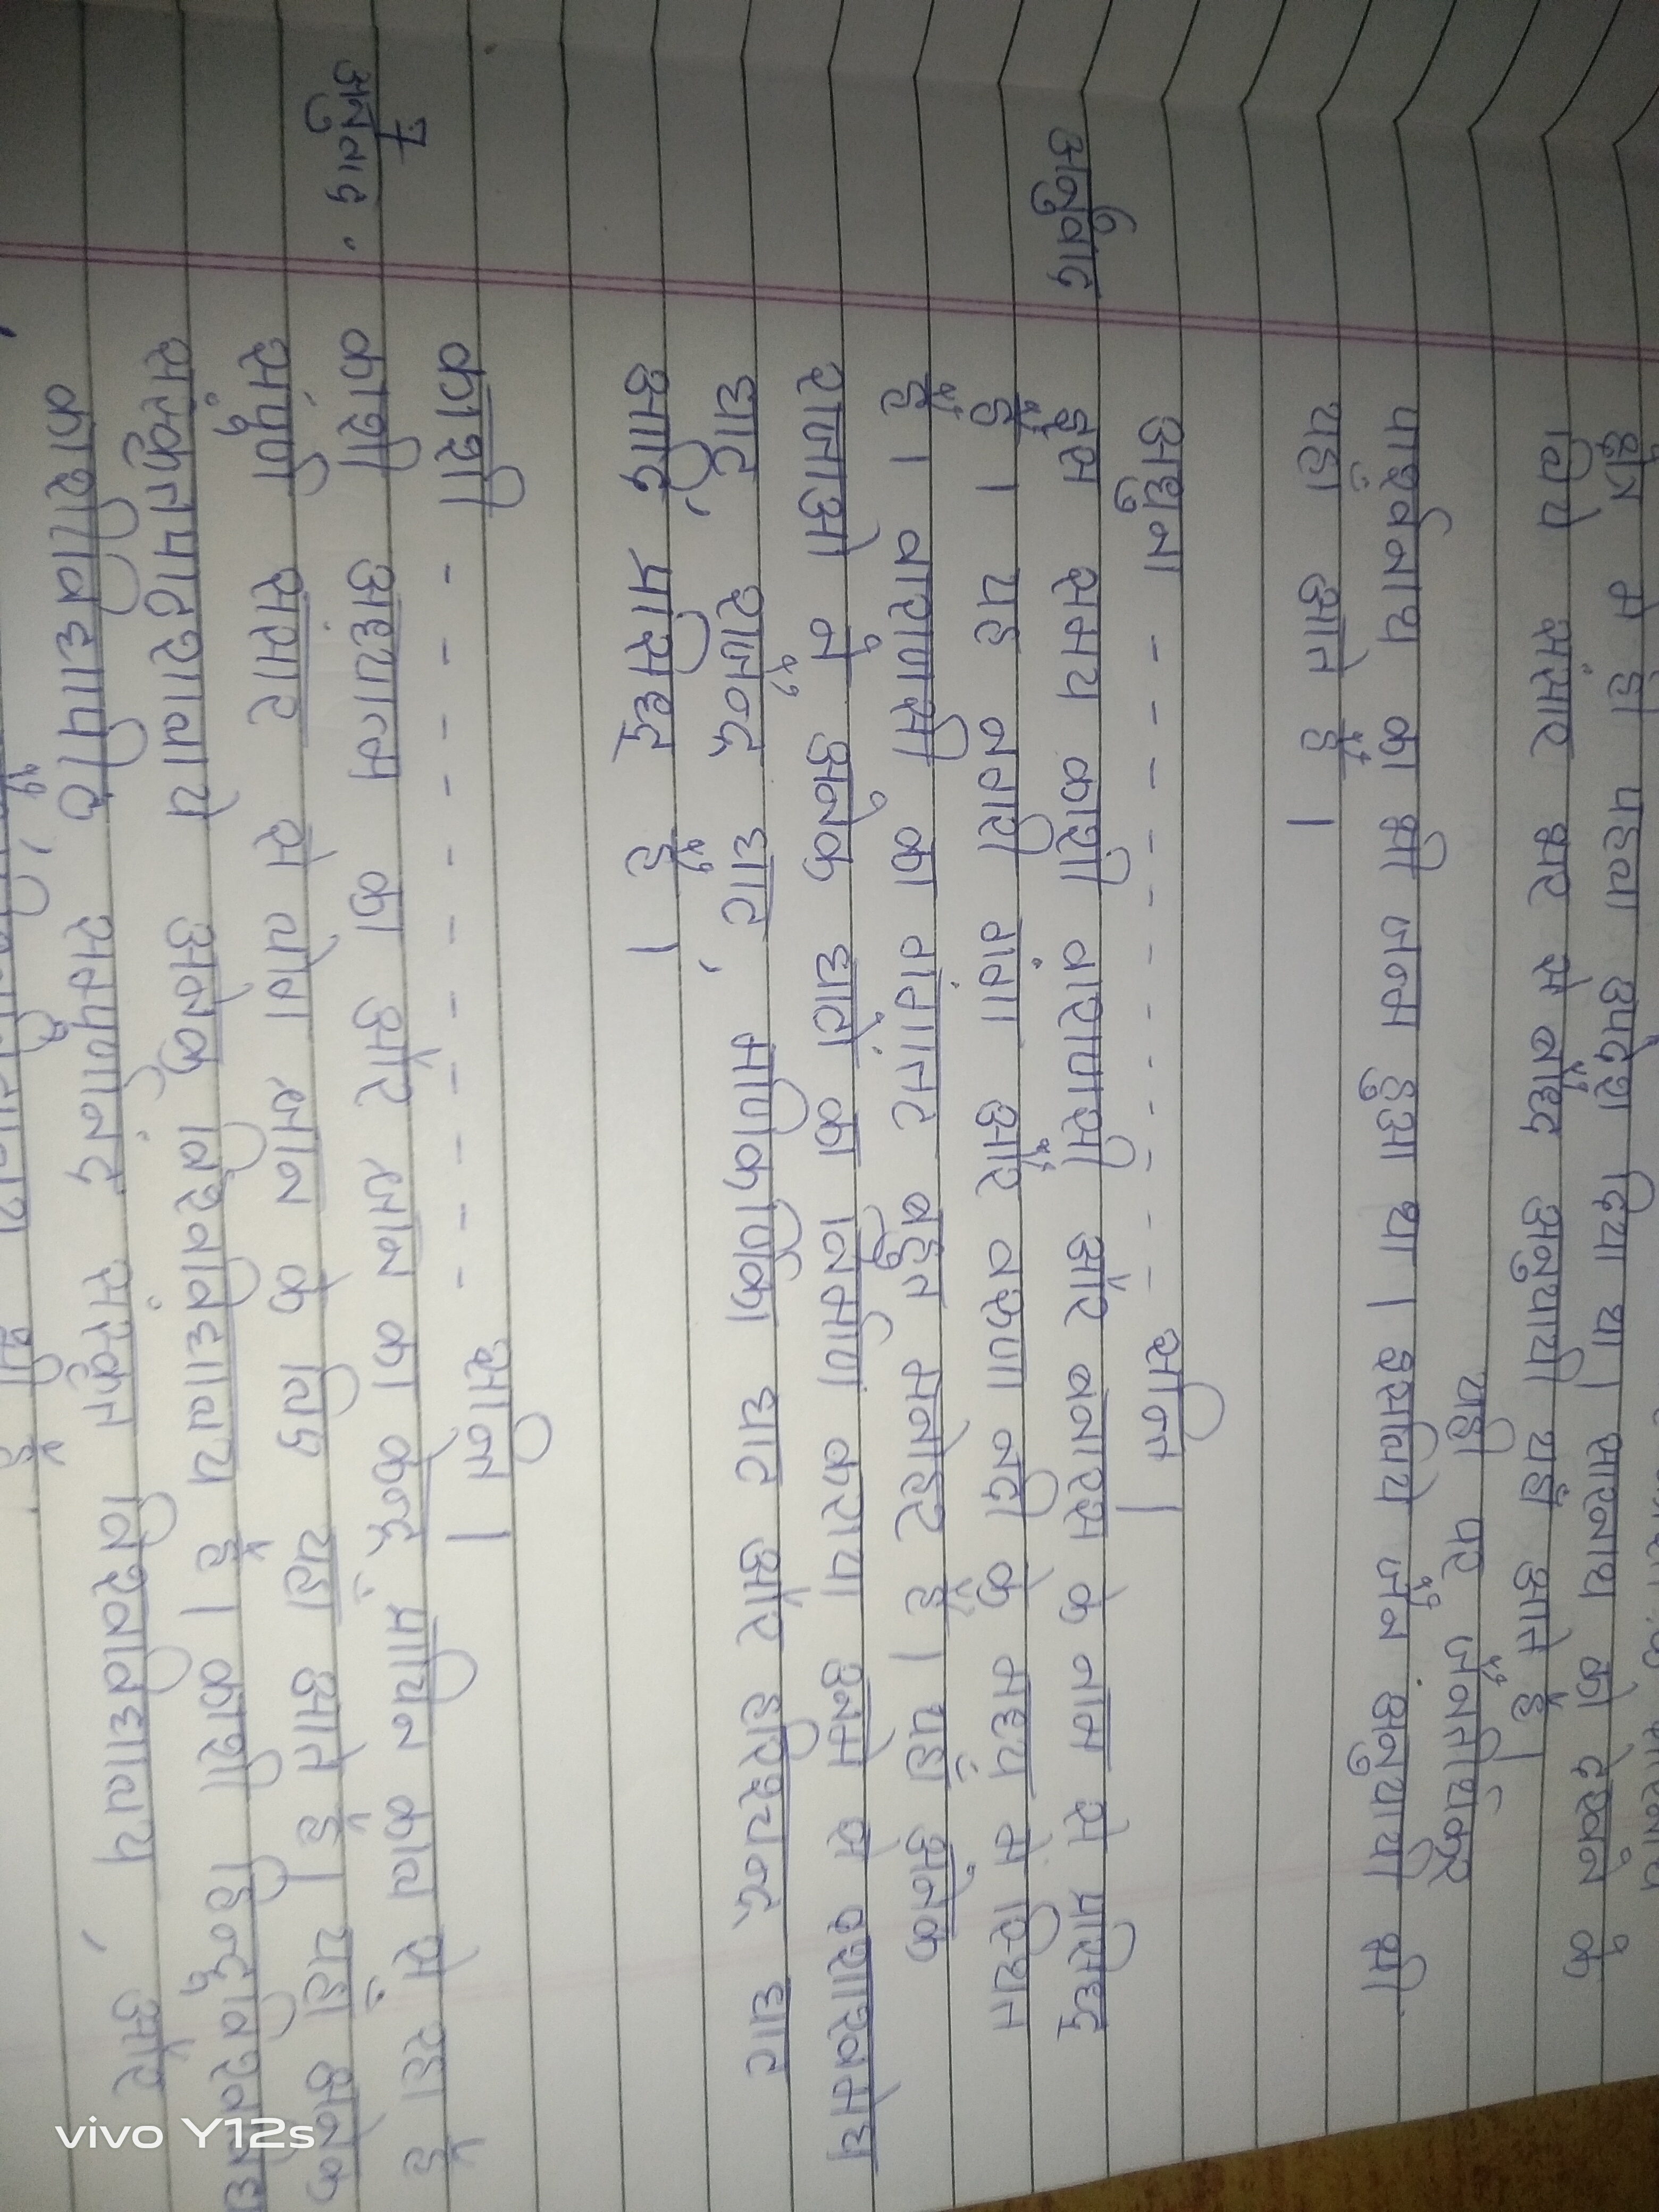 क्षेत्र मे ही पहला उपदेश दिया था। सारनाथ को देखने के
लिये संसार भर से बौध्द अनुयायी यहाँ आते है।
यही पर जैनतीर्थकर
पार्श्वनाथ का भी जन्म हुआ था। इसलिये जैन अनुयायी भी
यहाँ आते है।
अधुना - - - - - - - - सन्ति।
6
अनुवाद
इस समय काशी वाराणसी और बनारस के नाम से प्रसिध्द
है। यह नगरी गंगा और वरुणा नदी के मध्य मे स्थित
है। वाराणसी का गंगातट बहुत मनोहर है। यहाँ अनेक
राजाओ ने अनेक घाटो का निर्माण कराया उनमे से दशाश्वमेध
घाट, राजेन्द्र घाट, मणिकर्णिका घाट और हरिश्चन्द्र घाट
आदि प्रसिध्द है।
काशी - - - - - - - - सन्ति।
7
अनुवाद.
काशी अध्यात्म का और ज्ञान का केन्द्र प्राचिन काल से रहा है
संपूर्ण संसार से लोग ज्ञान के लिए यहा आते है। यहाँ अनेक
संस्कृतपाठशालाये अनेक विश्वविद्यालय है। काशी हिन्दूविश्वविद्या
काशीविद्यापीठ, सम्पूर्णानंद संस्कृत विश्वविद्यालय, और
भी है.
vivo Y12s